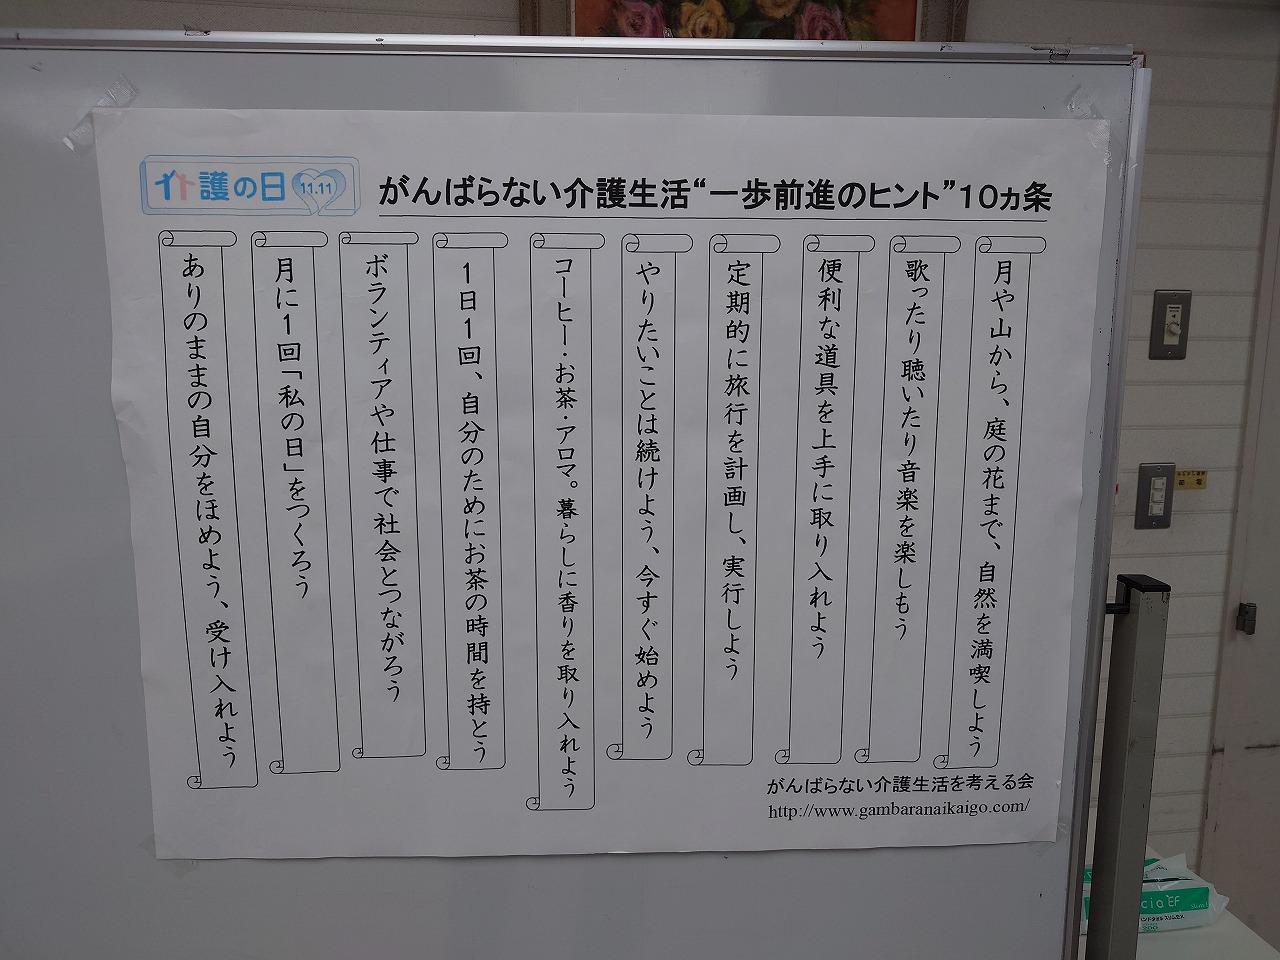 介護の日 11.11
がんばらない介護生活“一歩前進のヒント”10ヵ条
月や山から、庭の花まで、自然を満喫しよう
歌ったり聴いたり音楽を楽しもう
便利な道具を上手に取り入れよう
定期的に旅行を計画し、実行しよう
やりたいことは続けよう、今すぐ始めよう
コーヒー・お茶・アロマ。暮らしに香りを取り入れよう
1日1回、自分のためにお茶の時間を持とう
ボランティアや仕事で社会とつながろう
月に1回「私の日」をつくろう
ありのままの自分をほめよう、受け入れよう
がんばらない介護生活を考える会
http://www.gambaranaikaigo.com/
節電
cia EF
ハンドタオル スリムEX
200